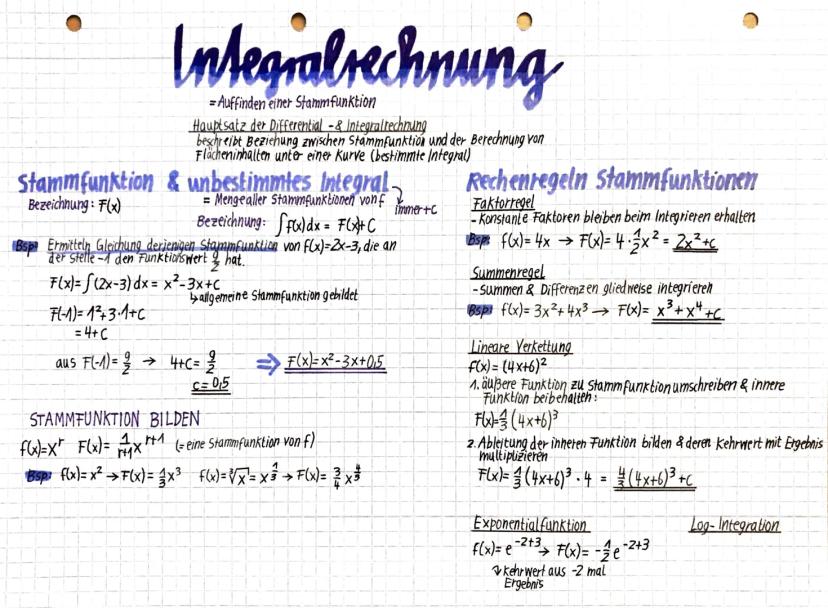 Integralrechnung
= Auffinden einer Stammfunktion
Hauptsatz der Differential -& Integralrechnung
beschreibt Beziehung zwischen Stammfunktion und der Berechnung von
Flächeninhalten unter einer Kurve (bestimmte Integral)
Stammfunktion & unbestimmtes Integral
Bezeichnung: F(x)
= Menge aller Stammfunktionen von f
immer +c
Bezeichnung: ∫f(x)dx = F(x)+C
Bsp: Ermitteln Gleichung derjenigen Stammfunktion von f(x)=2x-3, die an
der Stelle -1 den Funktionswert 9/2 hat.
F(x)=∫(2x-3)dx = x²-3x+c
↳allgemeine Stammfunktion gebildet
F(-1)= 1²+3·1+c
= 4+c
aus F(-1)= 9/2 → 4+c= 9/2 ⇒ F(x)=x²-3x+0,5
c=0,5
STAMMFUNKTION BILDEN
f(x)=x^r F(x)= 1/(r+1) x^(r+1) (= eine Stammfunktion von f)
Bsp: f(x)=x² → F(x)= 1/3 x³ f(x)=∛x = x^(1/3) → F(x)= 3/4 x^(4/3)
Rechenregeln Stammfunktionen
Faktorregel
- Konstante Faktoren bleiben beim Integrieren erhalten
Bsp: f(x)=4x → F(x)= 4·1/2x² = 2x²+c
Summenregel
- summen & Differenzen gliedweise integrieren
Bsp: f(x)= 3x²+4x³ → F(x)= x³+x⁴+c
Lineare Verkettung
f(x)= (4x+6)²
1. äußere Funktion zu Stammfunktion umschreiben & innere
Funktion beibehalten:
F(x)=1/3 (4x+6)³
2. Ableitung der inneren Funktion bilden & deren Kehrwert mit Ergebnis
multiplizieren
F(x)= 1/3 (4x+6)³ · 4 = 4/3 (4x+6)³ +c
Exponentialfunktion
f(x)= e^(-2+3) → F(x)= -1/2 e^(-2+3)
↳ Kehrwert aus -2 mal
Ergebnis
Log- Integration